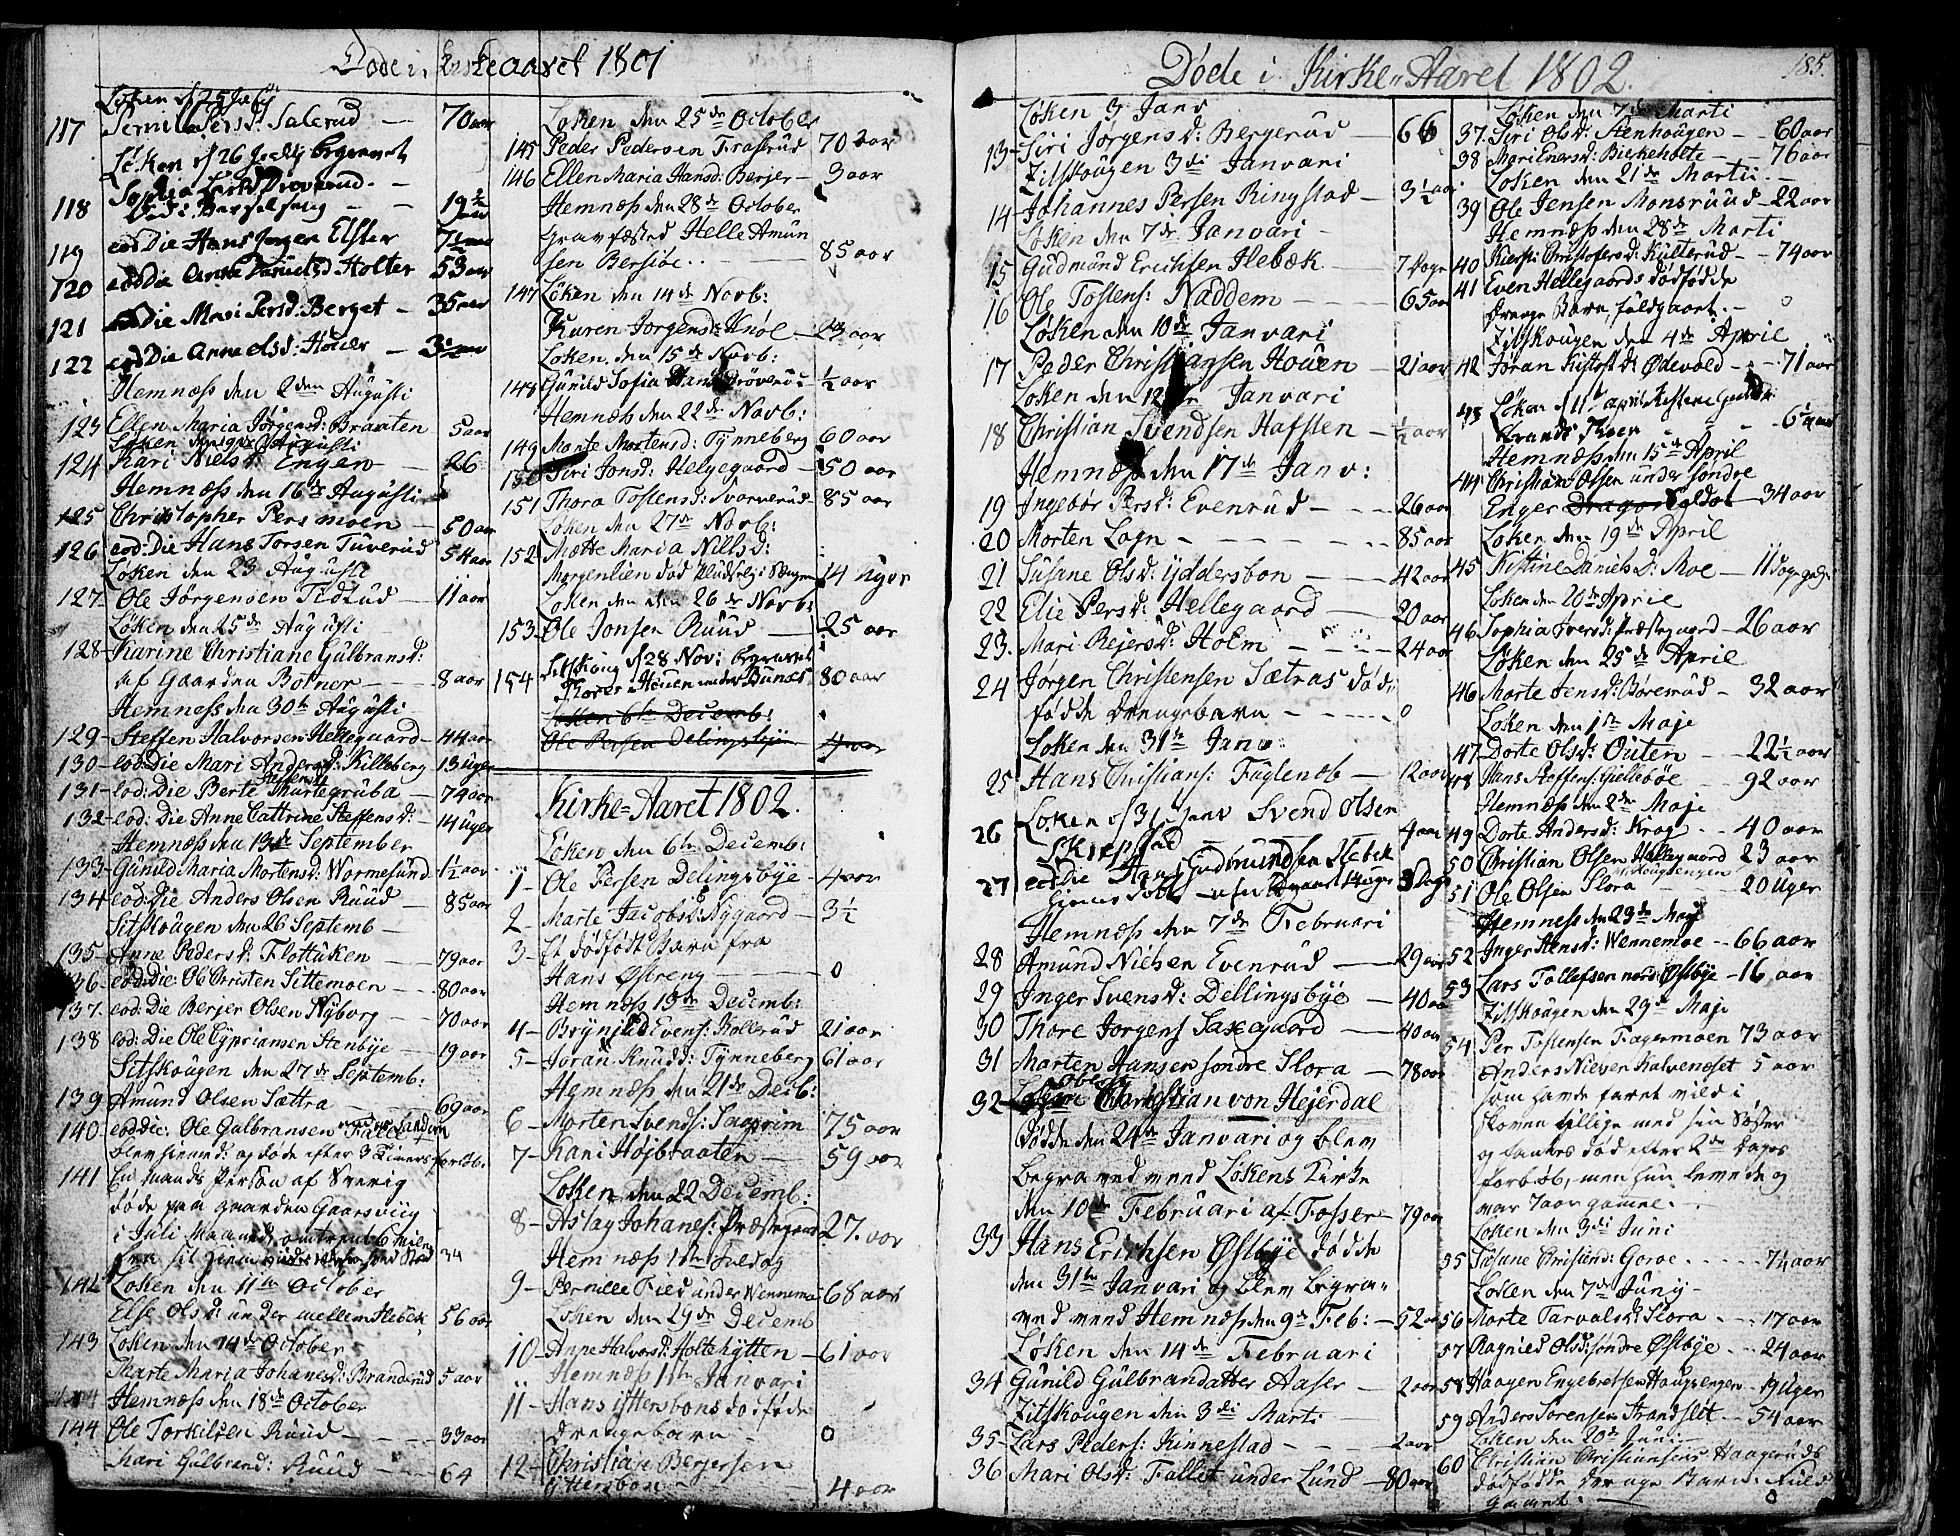 Døde i Kirkeaaret 1801
Løken d 25 July
117 Pernille Persd: Salerud — 70 aar
Løken d 26 July begravet
118 Sophia
Død i Barselseng — 19½ aar
119 eod: Die Hans Jørgen Elster 7½ aar
120 eod Die Anne Danielsd Holter 53 aar
121 eod Die Mari Persd: Berget — 35 aar
122 eod Die Anne Olsd: Houer — 3½ aar
Hemness den 2den Augusti
123 Ellen Maria Jørgensd: Braaten 5 aar
Løken Augusti
124 Kari Nielsd: Engen — 26
Hemness den 16de Augusti
125 Christopher Pers moen — 50 aar
126 eod: Die Hans Torsen Tuverud 54 aar
Løken den 23 Augusti
127 Ole Jørgensen Tidlud — 11 aar
Løken den 25de Augusti
128 Karine Christiane Gulbransd:
af Gaarden Botner — 8 aar
Hemness den 30te Augusti
129 Steffen Halvorsen Hellegaard — 44 aar
130 eod: Die Mari Andersd: Killeberg 13 uger
131 eod: Die Berte Martegruba — 74 aar
132 eod: Die Anne Cattrine Steffensd: 14 uger
Hemness den 13de September
133 Gunild Maria Mortensd: Wormelund 1½ aar
134 eod: Die Anders Olsen Ruud — 85 aar
Sitskougen den 26 Septemb
135 Anne Pedersd: Flottuken — 79 aar
136 eod: Die: Ole Christen Sittemoen — 80 aar
137 eod: Die Berjer Olsen Nyborg — 70 aar
138 eod: Die Ole Cypriansen Stenbye — 19 aar
Sitskougen den 27de Septemb:
139 Amund Olsen Sættra — 69 aar
140 eod: die: Ole Gulbransen Fallet
141 En mands Person af Sverig
døde paa gaarden Gaarsviig
i Juli Maaned, omtrent 6 mile
fra sit hiem 34
142 Løken den 11te October
Else Olsd: under mellem Hebek 56 aar
143 Løken den 14de October
Marte Maria Johanesd: Branderud 5 aar
Hemness den 18de October
144 Ole Torkilsen Ruud — 33 aar
Mari Gulbrand: Ruud — 64
Løken den 25de October
145 Peder Pedersen Frosrud 70 aar
146 Ellen Maria Hansd: Berjer — 3 aar
Hemness den 28de October
Gravfæsted Helle Amun
sen Bersiøe — 85 aar
147 Løken den 14de Novb:
Karen Jørgensd: Knøl — 23 aar
Løken den 15de Novb:
148 Gunild Sofia Hansd Prøverud ½ aar
Hemness den 22de Novb:
149 Marte Mortensd: Tynneberg 60 aar
150 Siri Jonsd: Helgegaard — 50 aar
151 Thora Tostensd: Svarverud 85 aar
Løken den 27de Novb:
152 Mætte Maria Nillsd:
Morgenlien død pludselig i Sengen 14 uger
Løken den 26de Novb:
153 Ole Jonsen Ruud — 25 aar
Sitskoug d 28 Nov: begravet
154 Thorer Houen under Bunes 80 aar
Løken 6te Decemb:
Ole Persen Delingsbye 4 aar
Kirke=Aaret 1802.
Løken den 6te Decemb:
1 — Ole Persen Delingsbye — 4 aar
2 — Marte Jacobsd: Nygaard — 3½
3 — Et dødfødt Barn fra
Hans Østreng — 0
Hemness 13de Decemb:
4 — Brynild Evens: Kollerud 21 aar
5 — Joran Knudsd: Tynneberg 61 aar
Hemness den 21de Decb:
6 — Morten Svends: Saaprim 75 aar
7 — Kari Højbraaten — 59 aar
Løken den 22 Decemb:
8 — Aslag Johanes: Præstegaard 27. aar
Hemness 1te Juledag
9 — Pernille Fieldunder Wennemo 68 aar
Løken den 29de Decemb
10 — Anne Halvorsd: Holtehytten — 61 aar
Hemness 1te Januari
11 — Hans ittersbons dødfødte
drengebarn — 0
12 — Christian Berjersen
Yttersbon — 4 aar
Døde i Kirke-Aaret 1802.
185.
Løken 3 Janv
13 — Siri Jørgensd: Bergerud — 66
Zitskougen 3di Janvari
14 Johannes Persen Ringstad — 3½ aar
Løken den 7de Janvari —
15 Gudmund Erichsen Hebæk — 7 Dage
16 Ole Tostens: Naddem — 65 aar
Løken den 10de Janvari
17 Peder Christiansen Houen — 21 aar
Løken den 12te Janvari
18 Christian Svendsen Hafsten — ½ aar
Hemness den 17de Janv:
19 Ingebor Persd: Evenrud — 26 aar
20 Morten Logn — 85 aar
21 Susane Olsd: Yddersbon — 42 aar
22 Elie Persd: Hellegaard — 20 aar
23. Mari Rejersd: Holm — 24 aar
24 Jørgen Christensen Sætras død
fødde drengebarn — 0
Løken den 31te Janv:
25 Hans Christians: Fuglenæb — 12 aar
26 Løken d 31 Janv Svend Olsen
4 aar
27 eod Die Hans Gudmundsen Hebek
3 Dage
Hemness den 7de Februari
28 Amund Nielsen Evenrud — 29 aar
29 Inger Svensd: Dellingsbye — 40 aar
30 Thore Jorgens Saxegaard — 40 aar
31 Marten Hansen søndre Slora — 78 aar
32 Christian von Hejerdal
Dødde den 24de Janvari og blev
begravved ved Løkens Kirke
den 10de Februari af Fosser — 79 aar
33 Hans Erichsen Østbye dødde
den 31te Janvari og blev begra-
ved ved Hemness den 9de Feb: — 52 aar
Løken den 14de Februari
34 Gunild Gulbrandatter Aaser — 2 aar
Zitskougen den 3di Marti
35 — Lars Peders: Kinnestad — 2 aar
36 Mari Olsd: Fallet under Lund — 80 aar
Løken den 7de Marti
37 Siri Olsd: Stenhougen — 60 aar
38 Mari Enersd: Birkeholte — 76 aar
Løken den 21de Marti —
39 Ole Jensen Monsruud — 22 aar
Hemness den 28de Marti
40 Kiersti Christofersd: Kullerud — 74 aar
41 Even Hellegaards dødfødde
drenge Barn, fuldgaaet. — 0
Zitskougen den 4de April
42 Jøran Kistofsd: Ødevold — 71 aar
43 Løken d 11te april
6½ aar
Hemness den 15de April
44 Christian Olsen under søndre
Enger — 34 aar
Løken den 19de April
45 Kistine Daniels D: Moe — 11 Dage
Løken den 20de April
46 Sophia Iversd: Præstegaard — 26 aar
Løken den 25de April
46 Marte Jensd: Børesrud — 32 aar
Løken den 1te Maje
47 Dorte Olsd: Outen — 22½ aar
48 Hans Stoffens: Gjellebøe — 92 aar
Hemness den 2den Maje
49 Dorte Andersd: Krog — 40 aar
50 Christian Olsen Hellegaard 23 aar
51 Ole Olsen Slora Haugsengen 20 uger
Hemness den 23de Maji
52 Inger Stensd: Wennemoe — 66 aar
53 Lars Tollefsen nordre Østbye — 16 aar
Zitskougen den 29de Maje
54 Per Tostensen Fagermoen 73 aar
Anders Nielsen Kalvenæset 5 aar
som havde faret vild i
skoven tillige med sin Søster
og fantes død efter 2de Dages
forløb, men hun levede og
var 7 aar gammel.
Løken den 3die Juni
55 Susane Christiansd: Gorve — 7½ aar
Løken den 7de Juny —
56 Marte Tarvalsd: Slora — 17 aar
57 Ragnild Olsd: søndre Østbye — 24 aar
58 Haagen Engebretsen Haugsengen — 19 uger
59 Anders Sørensen Strandslet — 54 aar
Løken den 20de Juni
60 Christian Christiansens Haageruds
dødfødde drenge Barn. Fuld
gaaet. — 0